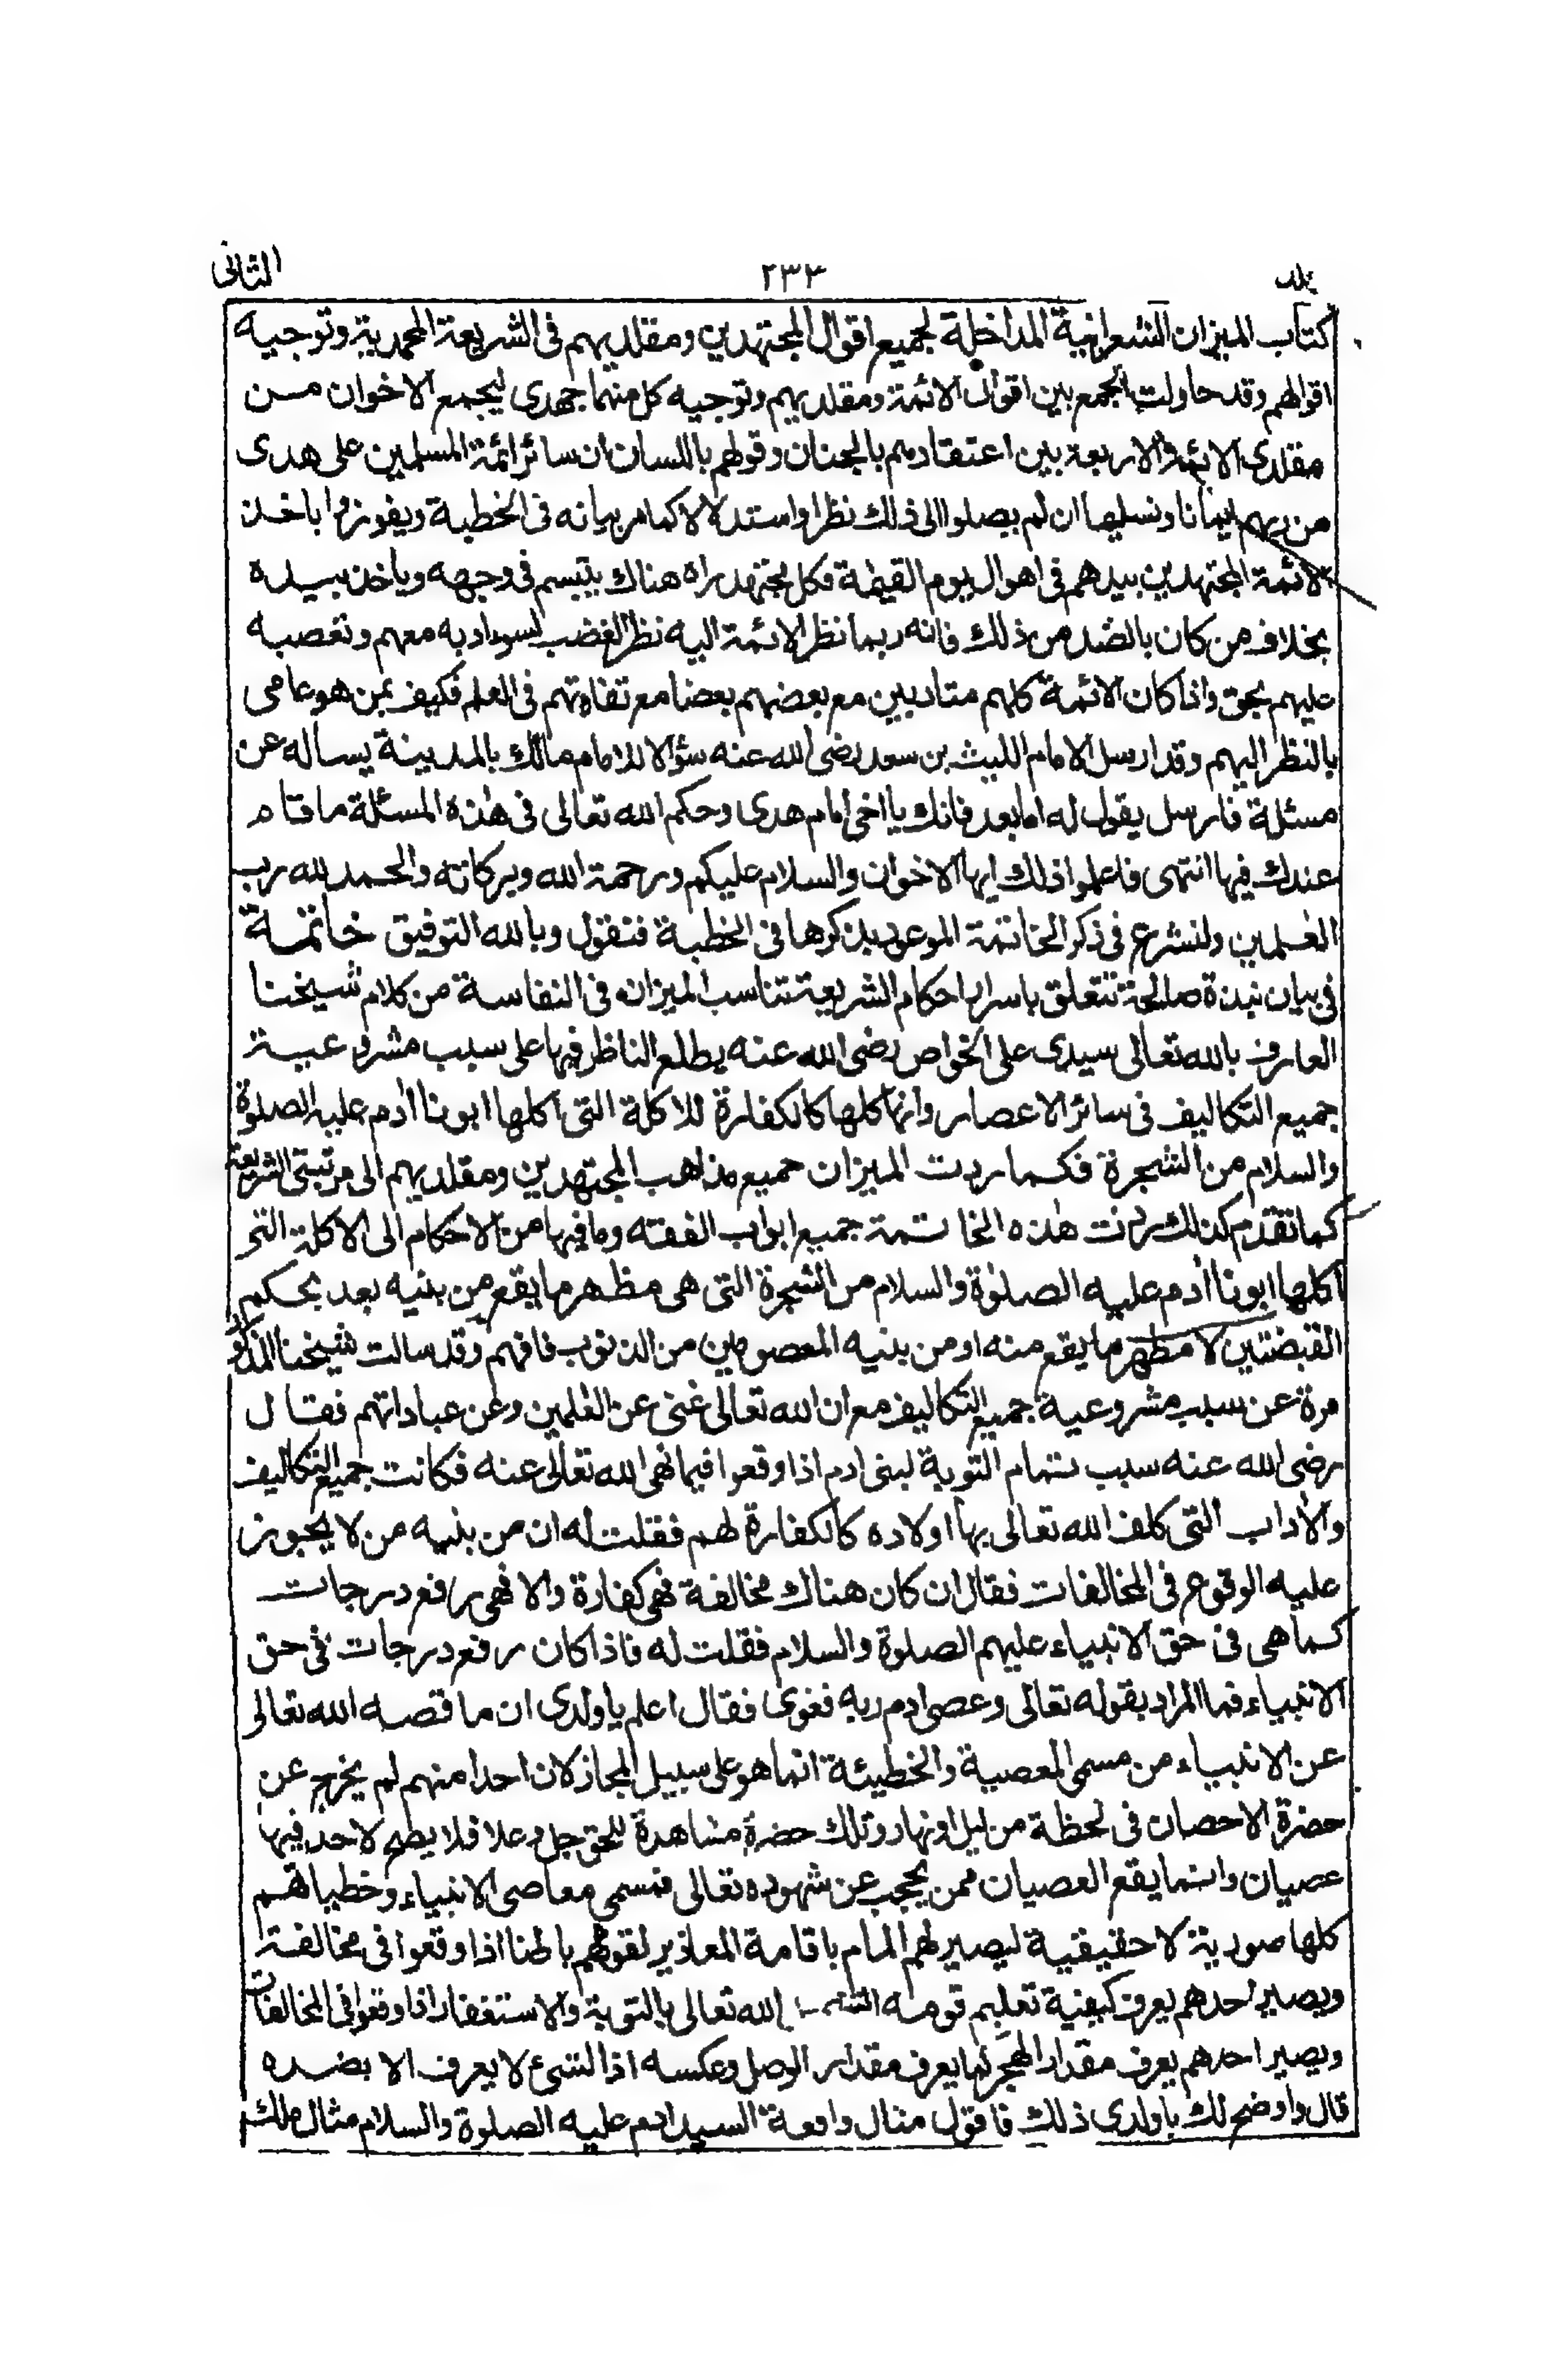 جلد ٢٣٣ الثانى
كتاب الميزان الشعرانية المداخلة لجميع اقوال المجتهدين ومقلديهم فى الشريعة المحمدية وتوجيه
اقوالهم وقد حاولت الجمع بين اقوال الائمة ومقلديهم وتوجيه كل منهما جهدى ليجمع الاخوان مسن
مقلدى الائمة الاربعة بين اعتقادهم بالجنان وقولهم باللسان ان سائر ائمة المسلمين على هدى
من ربهم ايمانا وتسليما ان لم يصلوا الى ذلك نظرا واستدلالا كما مر بيانه فى الخطبة ويفوزوا باخذ
الائمة المجتهدين بيدهم فى اهوال يوم القيٰمة فكل مجتهد راه هناك يتبسم فى وجهه وياخذ بيده
بخلاف من كان بالضد من ذلك فانه ربما نظر الائمة اليه نظر الغضب لسوء ادبه معهم وتعصبه
عليهم بحق واذا كان الائمة كلهم متادبين مع بعضهم بعضا مع تفاوتهم فى العلم فكيف بمن هو عامى
بالنظر اليهم وقد ارسل الامام الليث بن سعد رضى الله عنه سؤالا للامام مالك بالمدينة يساله عن
مسئلة فارسل يقول له اما بعد فانك يا اخى امام هدى وحكم الله تعالى فى هٰذه المسئلة ما قام
عندك فيها انتهى فاعلموا ذلك ايها الاخوان والسلام عليكم ورحمة الله وبركاته والحمد لله رب
العٰلمين ولنشرع فى ذكر الخاتمة الموعود بذكرها فى الخطبة فنقول وبالله التوفيق خاتمة
فى بيان نبذة صالحة تتعلق باسرار احكام الشريعة تناسب الميزان فى النفاسة من كلام شيخنا
العارف بالله تعالى سيدى على الخواص رضى الله عنه يطلع الناظر فيها على سبب مشروعية
جميع التكاليف فى سائر الاعصار وانها كلها كالكفارة للاكلة التى اكلها ابونا اٰدم عليه الصلوة
والسلام من الشجرة فكما ردت الميزان جميع مذاهب المجتهدين ومقلديهم الى مرتبتى الشريعة
كما تقدم كذلك ردت هٰذه الخاتمة جميع ابواب الفقه وما فيها من الاحكام الى الاكلة التى
اكلها ابونا اٰدم عليه الصلوٰة والسلام من الشجرة التى هى مظهر ما يقع من بنيه بعد بحكم
القبضتين لا مظهر ما يقع منه او من بنيه المعصومين من الذنوب فافهم وقد سالت شيخنا المذكور
مرة عن سبب مشروعية جميع التكاليف مع ان الله تعالى غنى عن العٰلمين وعن عباداتهم فقال
رضى الله عنه سبب تمام التوبة لبنى ادم اذا وقعوا فيما نهى الله تعالى عنه فكانت جميع التكاليف
والاٰداب التى كلف الله تعالى بها اولاده كالكفارة لهم فقلت له ان من بنيه من لا يجوز
عليه الوقوع فى المخالفات فقال ان كان هناك مخالفة فهى كفارة والا فهى رفع درجات
كما هى فى حق الانبياء عليهم الصلوة والسلام فقلت له فاذا كان رفع درجات فى حق
الانبياء فما المراد بقوله تعالى وعصى ادم ربه فغوى فقال اعلم يا ولدى ان ما قصه الله تعالى
عن الانبياء من مسمى المعصية والخطيئة انما هو على سبيل المجاز لان احدا منهم لم يخرج عن
حضرة الاحصان فى لحظة من ليل او نهار وتلك حضرة مشاهدة للحق جل وعلا فلا يطمع لاحد فيها
عصيان وانما يقع العصيان ممن يحجب عن شهوده تعالى فتسمى معاصى الانبياء وخطياتهم
كلها صورية لا حقيقية ليصير لهم المام باقامة المعاذير لقومهم باطنا اذا وقعوا فى مخالفة
ويصير احدهم يعرف كيفية تعليم قومه الله تعالى بالتوبة والاستغفار اذا وقعوا فى المخالفات
ويصير احدهم يعرف مقدار الهجر كما يعرف مقدار الوصل وعكسه اذ الشىء لا يعرف الا بضده
قال واوضح لك يا ولدى ذلك فاقول مثال واقعة السيد ادم عليه الصلوة والسلام مثال ملك